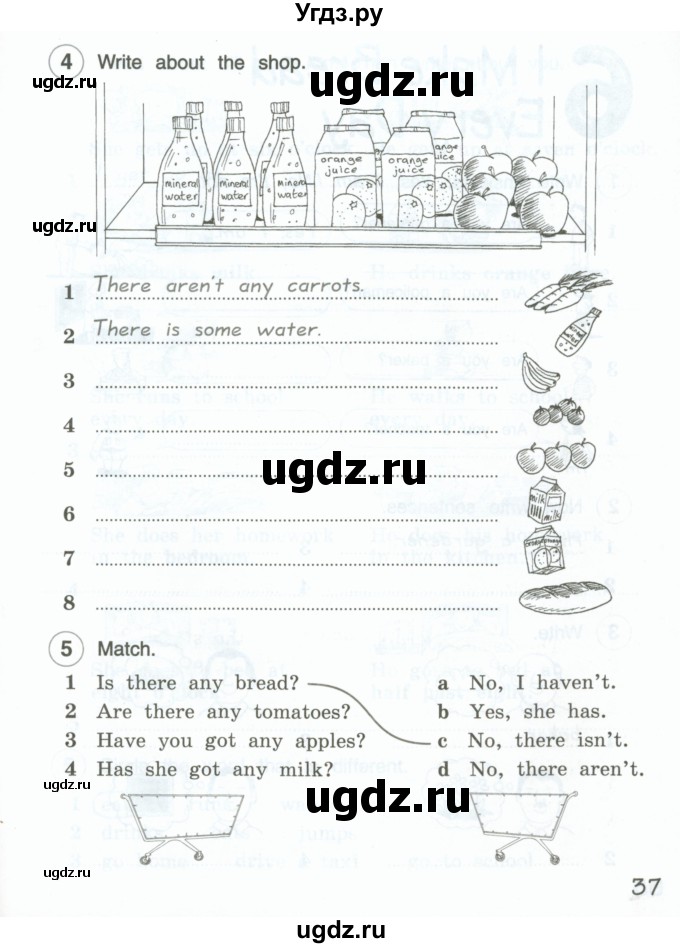 Угдз.ру
4 Write about the shop.
ugdz.ru ugdz.ru ugdz.ru
orange juice orange juice
mineral water mineral water mineral water
ugdz.ru ugdz.ru
1 There aren't any carrots.
2 There is some water.
mineral water
3
ugdz.ru ugdz.ru
4
5
ugdz.ru
6
milk milk
7
ugdz.ru ugdz.ru
8
5 Match.
ugdz.ru ugdz.ru
1 Is there any bread? a No, I haven't.
2 Are there any tomatoes? b Yes, she has.
3 Have you got any apples? c No, there isn't.
4 Has she got any milk? d No, there aren't.
ugdz.ru
ugdz.ru ugdz.ru
37
ugdz.ru